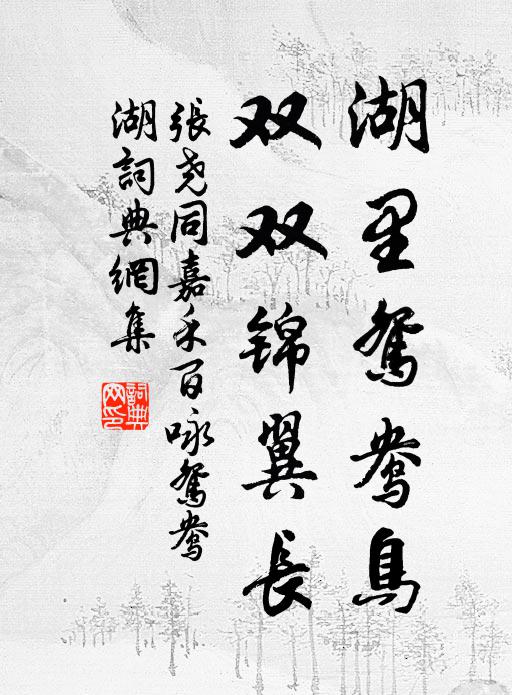 湖里鸳鸯鳥
双双锦翼長
張尧同嘉禾百咏鸳鸯
湖詞典網集
詞典
网印